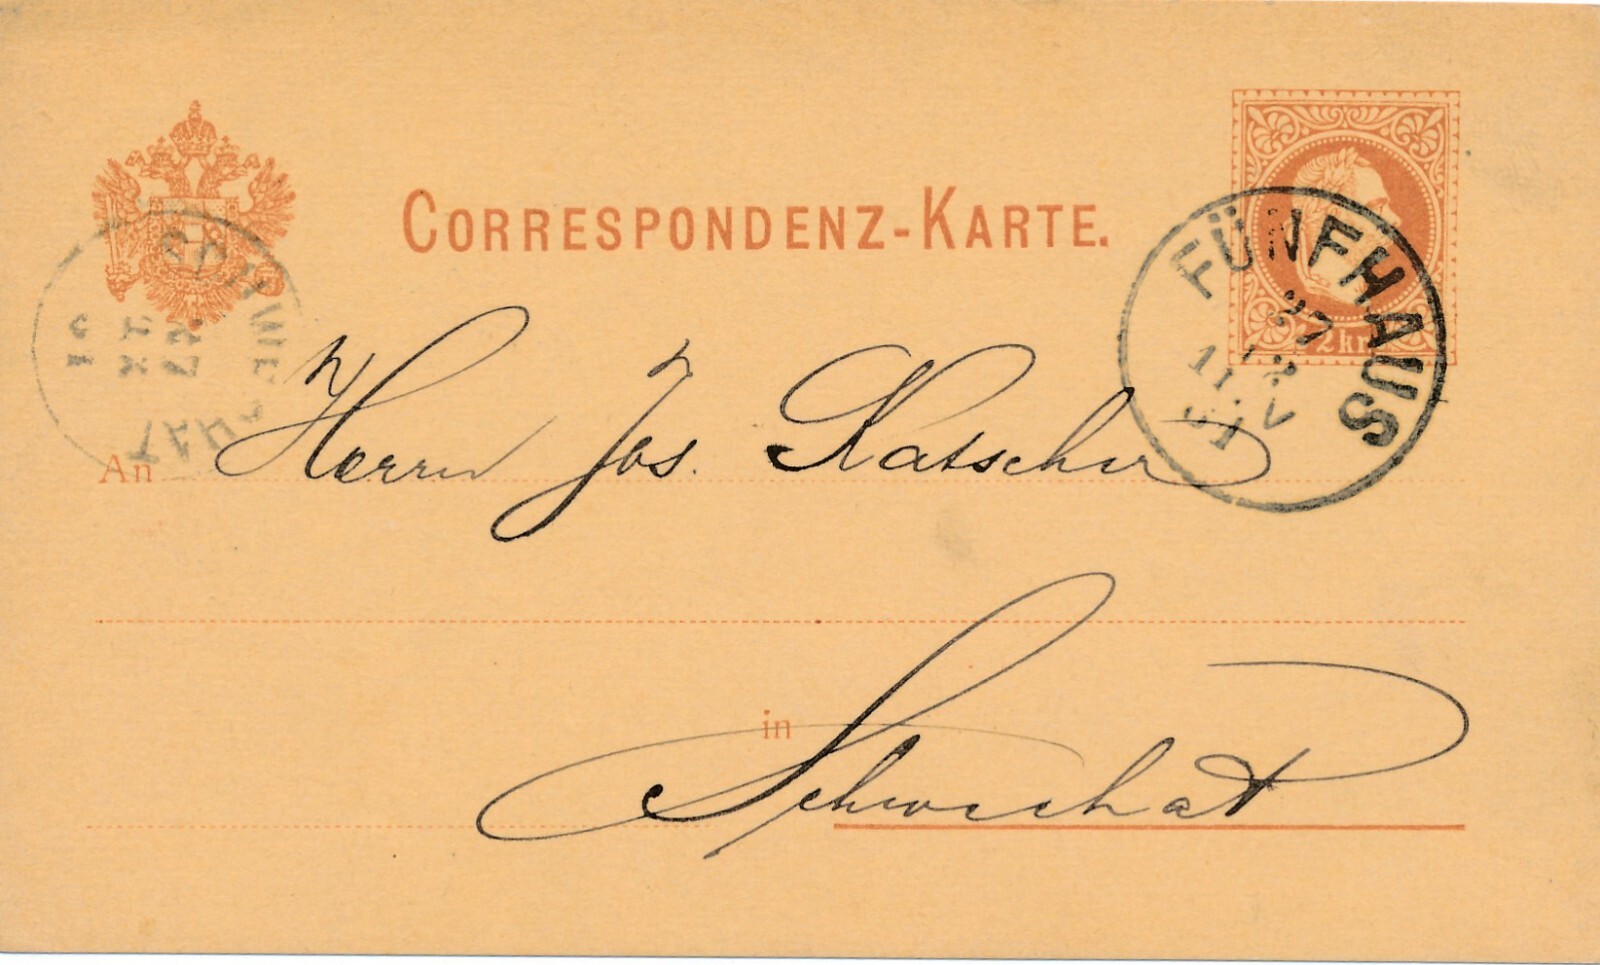 CORRESPONDENZ-KARTE.
2 kr
FÜNFHAUS
27
12
81
SCHWECHAT
27
An Herrn Jos. Katscher
in Schwechat